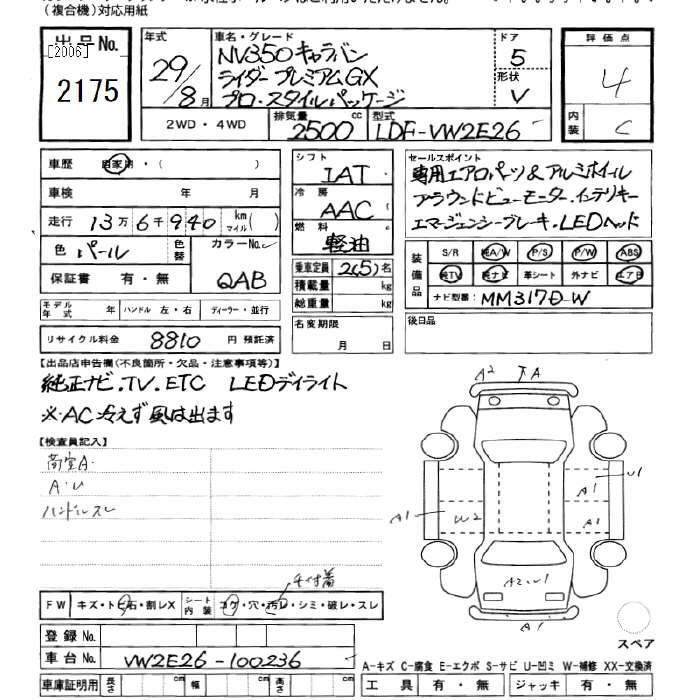 (複合機)対応用紙
出品No. [2006] 2175
年式 29/8月
車名・グレード NV350キャラバン
ライダープレミアムGX
プロ・スタイルパッケージ
ドア 5
形状 V
評価点 4
内装 C
2WD・4WD 排気量 2500 cc 型式 LDF-VW2E26
車歴 自家用・( )
車検 年 月
走行 13万6千940 km マイル( )
色 パール 色替 カラーNo. QAB
保証書 有・無
モデル年式 年 ハンドル 左・右 ディーラー・並行
リサイクル料金 8810 円 預託済
シフト IAT
冷房 AAC
燃料 軽油
乗車定員 2(5) 名
積載量 kg
総重量 kg
名変期限 月 日
セールスポイント
専用エアロパーツ&アルミホイール
アラウンドビューモニター.インテリキー
エマージェンシーブレーキ.LEDヘッド
装備品 S/R 純A/W P/S P/W ABS
純TV 純ナビ 革シート 外ナビ エアB
ナビ型番: MM317D-W
後日品
【出品店申告欄(不良箇所・欠品・注意事項等)】
純正ナビ.TV.ETC LEDデイライト
※AC冷えず風は出ます
【検査員記入】
荷室A
A・U
ハンドルスレ
A2 A
U1
A1
A1 W2 A1
A2 U1
A1
スペア
チリ付着
FW キズ・トビ石・割レX シート内装 コゲ・穴・汚レ・シミ・破レ・スレ
登録No.
車台No. VW2E26-100236
車庫証明用 長さ cm 幅 cm 高さ cm
A-キズ C-腐食 E-エクボ S-サビ U-凹ミ W-補修 XX-交換済
工具 有・無 ジャッキ 有・無